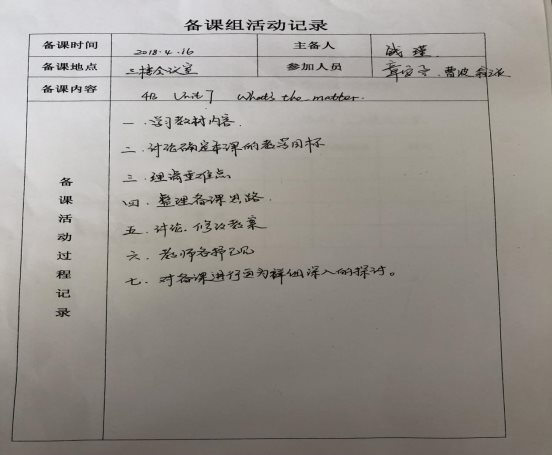 备课组活动记录
备课时间 2018.4.16 主备人
备课地点 三楼会议室 参加人员 曹波
备课内容 4B Unit 7 What's the matter.
备课活动过程记录
一.学习教材内容.
二.讨论确定本课的教学目标
三.理清重难点
四.整理备课思路.
五.讨论.修改教案
六.教师各抒己见
七.对备课进行更为详细深入的探讨。